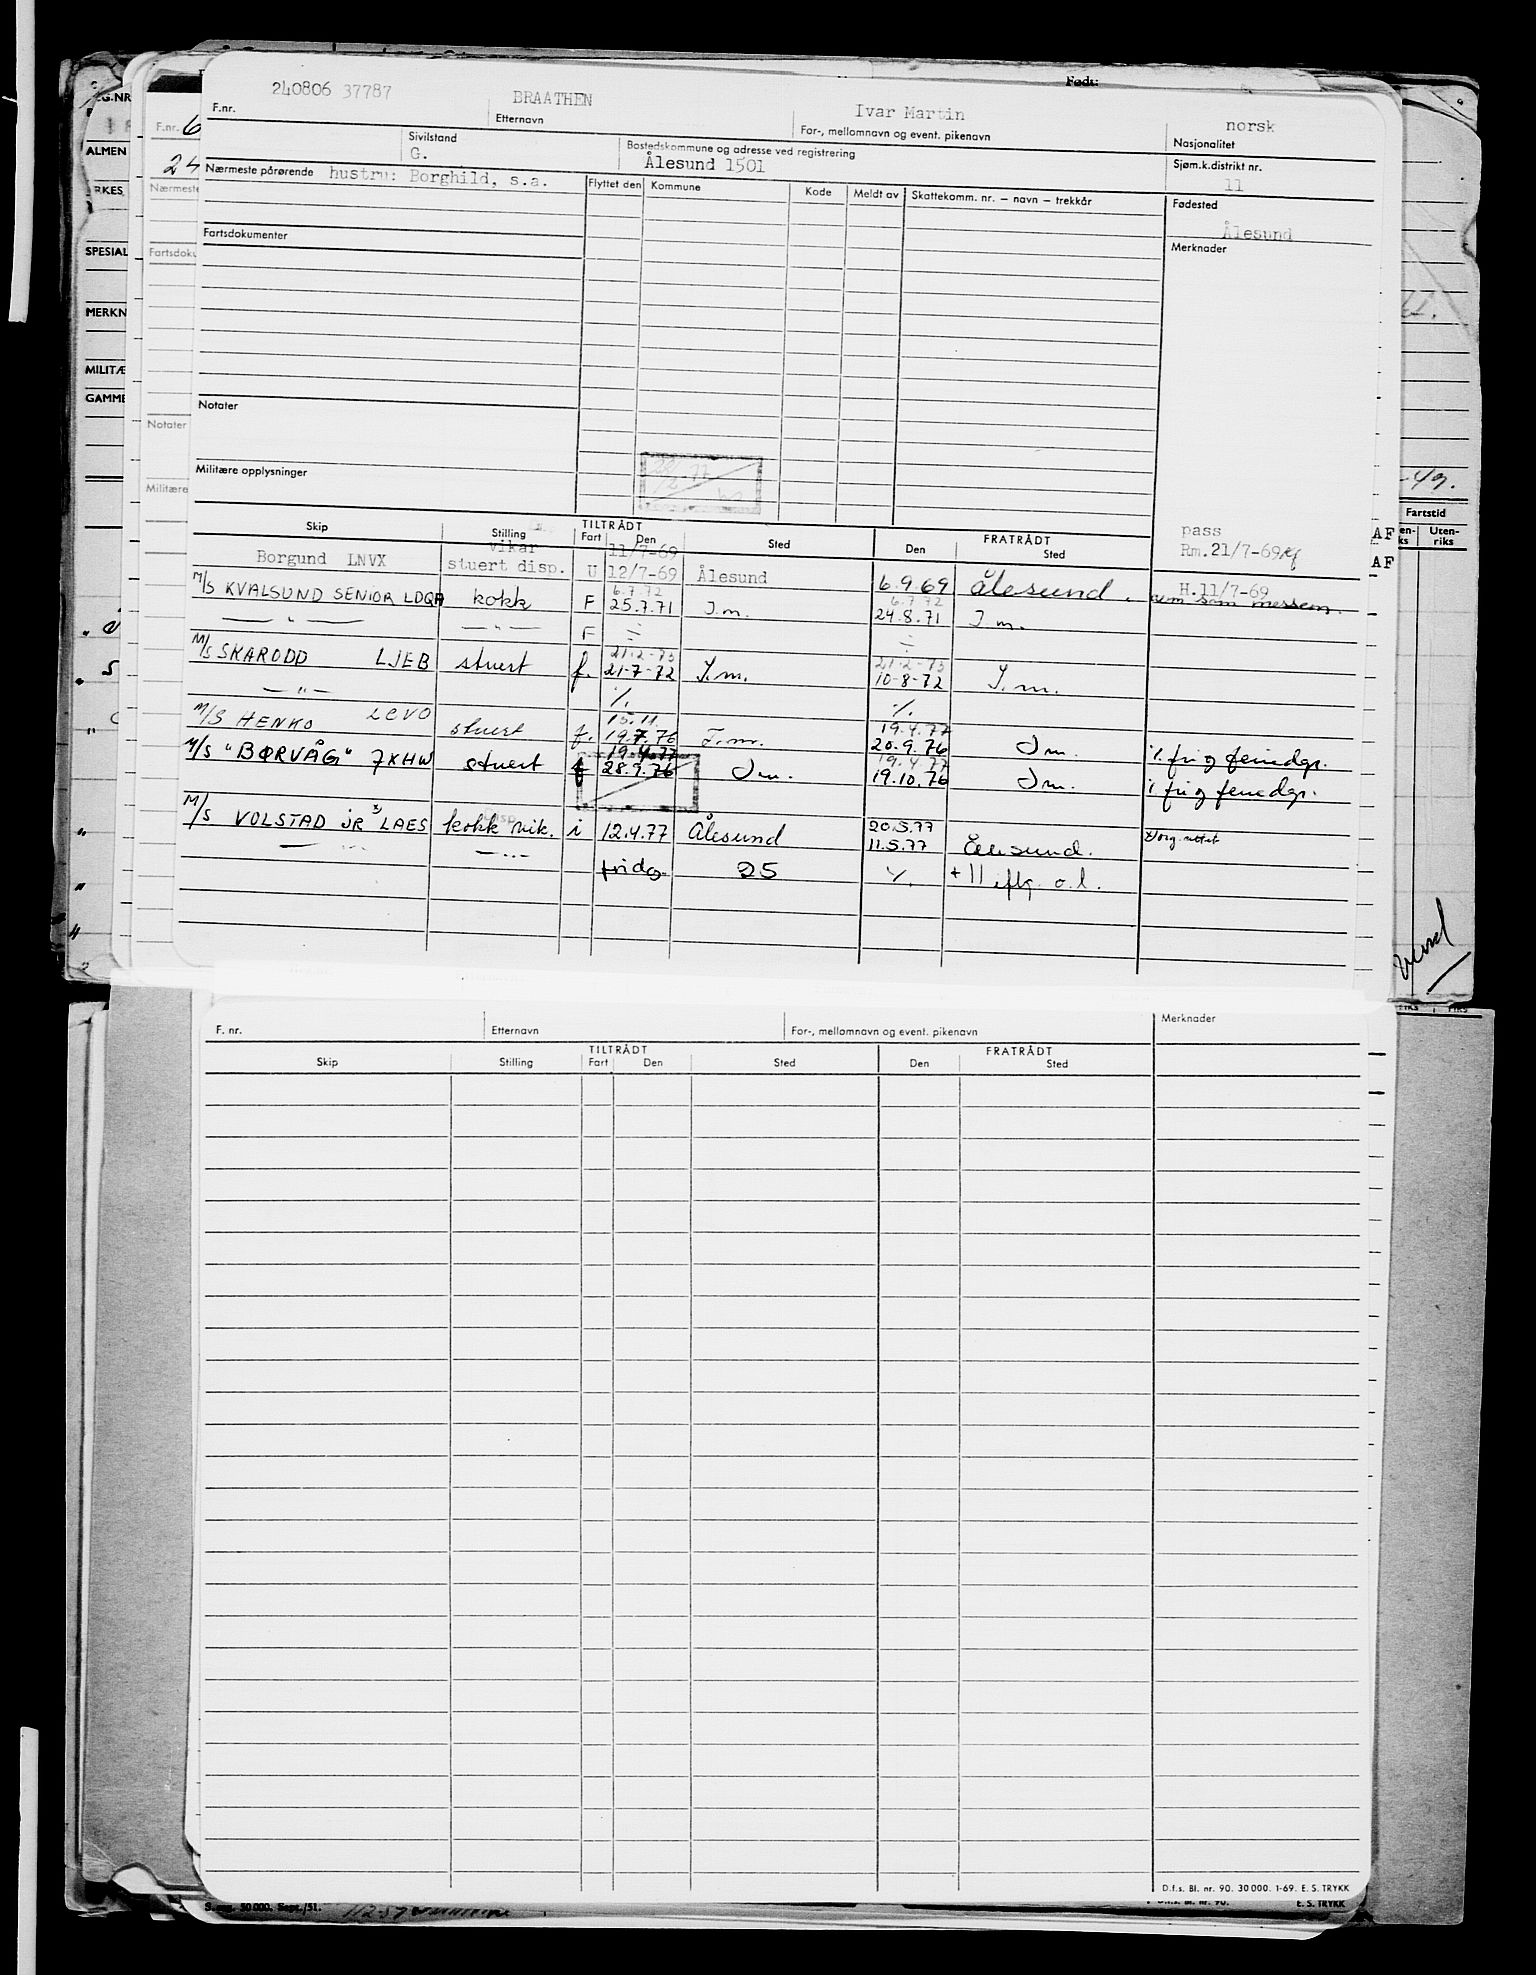 Født:
240806 37787 BRAATHEN Ivar Martin norsk
F.nr. Etternavn For-, mellomnavn og event. pikenavn Nasjonalitet
Sivilstand Bostedskommune og adresse ved registrering Sjøm.k.distrikt nr.
G. Ålesund 1501 11
Nærmeste pårørende hustru: Borghild, s.a. Flyttet den Kommune Kode Meldt av Skattekomm. nr. — navn — trekkår Fødested
Ålesund
Fartsdokumenter Merknader
Notater
Militære opplysninger
Skip Stilling TILTRÅDT Fart Den Sted FRATRÅDT Den Sted
pass
Rm.21/7-69
vikar 11/7-69
Borgund LNVX stuert disp. U 12/7-69 Ålesund 6.9.69 Ålesund. H.11/7-69
6.7.72 6.7.72
M/S KVALSUND SENIOR LDQR kokk F 25.7.71 I.m. 24.8.71 I m.
— " — — " — F ÷ ÷
21-2-73 21-2-73
M/S SKARODD LJEB stuert f. 21-7-72 I.m. 10-8-72 I.m.
— " — %. %.
15.11. 19.4.77
M/S HENKO LCVO stuert f. 19.7.76 I.m. 20.9.76 I m. % fri og feriedgr.
19.4.77 19.4.77
M/S "BØRVÅG" JXHW stuert f 28.9.76 I m. 19.10.76 I m. % fri og feriedgr.
20.5.77
M/S VOLSTAD JR x) LAES kokk vik. i 12.4.77 Ålesund 11.5.77 Ålesund.
— " — — " — fridg. 25 %. + 11 o.l.
F. nr. Etternavn For-, mellomnavn og event. pikenavn Merknader
Skip Stilling TILTRÅDT Fart Den Sted FRATRÅDT Den Sted
D.f.s. Bl. nr. 90. 30 000. 1-69. E. S. TRYKK
50 000. Sept./51.
E. S. TRYKK
F.nr. 6
24
Nærmeste
Notater
Militære
ALMEN
SPESIAL
MERKN
MILITÆ
GAMME
AF
AF
-49.
Fartstid
Uten-
riks